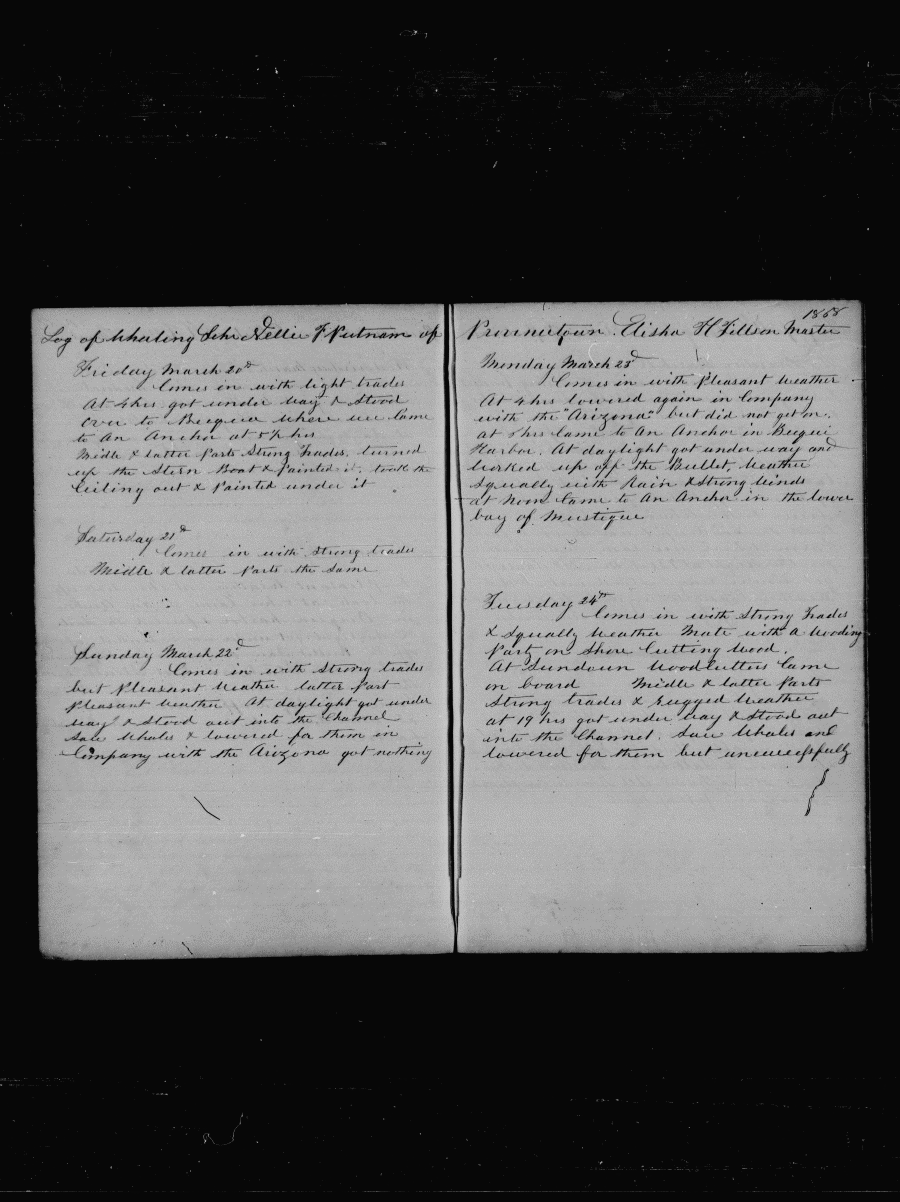 Log of Whaling Sch Nellie F Putnam of
Friday March 20th
Comes in with light trades
At 4 hrs got under way & stood
over to Bequia where we Came
to An Anchor at 5½ hrs
Midle & latter Parts Strong Trades, turned
up the Stern Boat & Painted it, took the
Ceiling out & Painted under it
Saturday 21st
Comes in with strong trades
Midle & latter Parts the same
Sunday March 22d
Comes in with strong trades
but Pleasant Weather latter Part
Pleasant Weather At daylight got under
way & stood out into the Channel
Saw Whales & lowered for them in
Company with the Arizona got nothing
1868
Provincetown. Elisha H Tillson Master
Monday March 23d
Comes in with Pleasant Weather
At 4 hrs lowered again in Company
with the "Arizona" but did not get on.
at 6 hrs Came to An Anchor in Bequi
Harbor. At daylight got under way and
worked up off the Bullet, Weather
Squally with Rain & Strong Winds
at Noon Came to An Anchor in the lower
bay of Mustique
Tuesday 24th
Comes in with Strong Trades
& Squally Weather Mate with a Wooding
Party on Shore Cutting Wood.
At Sundown Wood Cutters Came
on board Midle & latter Parts
Strong trades & rugged Weather
at 19 hrs got under way & Stood out
into the Channel. Saw Whales and
lowered for them but unsucessfully